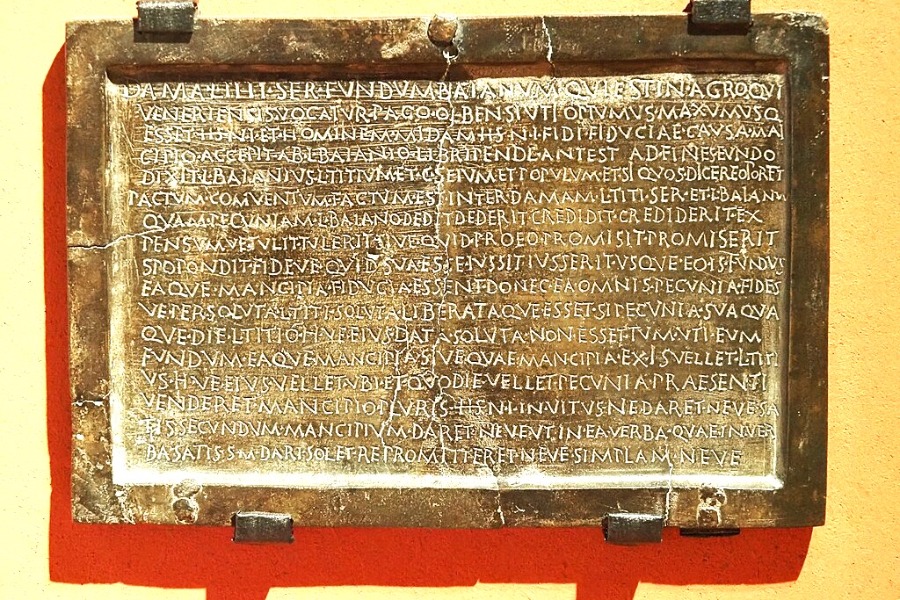 DAMA·L·TITI·SER·FVNDVM BAIANVM·QVI·EST·IN·AGRO·QVI
VENERIENSIS·VOCATVR·PAGO·OLBENSI·VTI·OPTVMVS·MAXVMVSQ
ESSET·HS·N·I·ET·HOMINEM·MIDAM·HS·N·I·FIDI·FIDVCIAE·CAVSA·MA
CIPIO·ACCEPIT·AB·L·BAIANIO·LIBRIPENDE·ANTEST ADFINES·FVNDO
DIXIT·L·BAIANIVS·L·TITIVM·ET·C·SEIVM·ET·POPVLVM·ET·SI QVOS·DICERE·OPORET
PACTVM·COMVENTVM·FACTVM·EST INTER·DAMAM·L·TITI·SER·ET·L·BAIAN
QVAM·PECVNIAM·L·BAIANO·DEDIT·DEDERIT·CREDIDIT·CREDIDERIT·EX
PENSVMVE·TVLIT·TVLERIT·SIVE·QVID·PRO·EO·PROMISIT·PROMISERIT
SPOPONDIT·FIDEVE·QVID·SVA·ESSE·IVSSIT·IVSSERIT·VSQVE·EO·IS·FVNDVS
EAQVE·MANCIPIA·FIDVCIA·ESSENT·DONEC·EA·OMNIS·PECVNIA·FIDES
VE·PERSOLVTA·L·TITI·SOLVTA·LIBERATAQVE·ESSET·SI·PECVNIA·SVA·QVA
QVE·DIE·L·TITIO·H·VE·EIVS·DATA·SOLVTA·NON·ESSET·TVM·VTI·EVM
FVNDVM·EAQVE·MANCIPIA·SIVE·QVAE·MANCIPIA·EX·IS·VELLET·L·TITI
VS·H·VE·EIVS·VELLET·VBI·ET·QVO·DIE·VELLET·PECVNIA·PRAESENTI
VENDERET·MANCIPIO·PLVRIS·HS·N·I·INVITVS·NE·DARET·NEVE·SA
TIS·SECVNDVM·MANCIPIVM·DARET·NEVE·VT·IN·EA·VERBA·QVAE·IN·VER
BA·SATIS·S·M·DARI·SOLET·REPROMITTERET·NEVE·SIMPLAM·NEVE